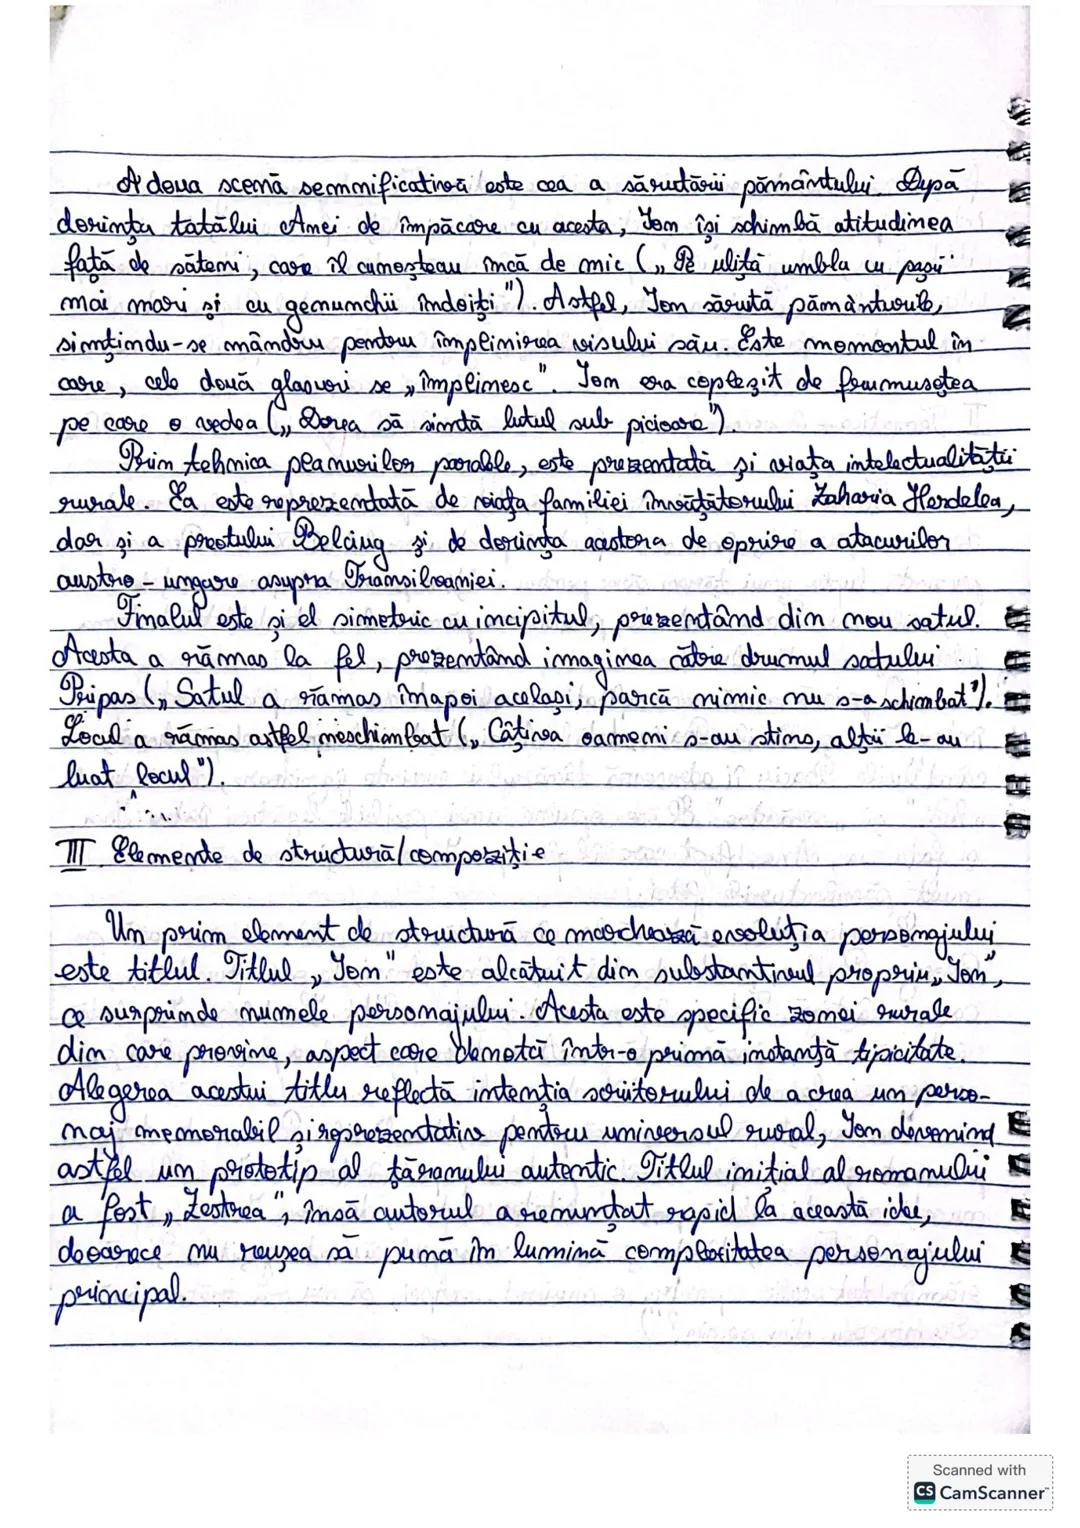 A doua scenă semnificativă este cea a sărutării pământului. După
dorința tatălui Anei de împăcare cu acesta, Ion își schimbă atitudinea
față de săteni, care îl cunoșteau încă de mic („Pe uliță umbla cu pașii
mai mari și cu genunchii îndoiți"). Astfel, Ion sărută pământurile,
simțindu-se mândru pentru împlinirea visului său. Este momentul în
care, cele două glasuri se „împlinesc". Ion era copleșit de frumusețea
pe care o vedea („Dorea să simtă lutul sub picioare").
Prin tehnica planurilor paralele, este prezentată și viața intelectualității
rurale. Ea este reprezentată de viața familiei învățătorului Zaharia Herdelea,
dar și a preotului Belciug și de dorința acestora de oprire a atacurilor
austro-ungare asupra Transilvaniei.
Finalul este și el simetric cu incipitul, prezentând din nou satul.
Acesta a rămas la fel, prezentând imaginea către drumul satului
Pripas („Satul a rămas înapoi același, parcă nimic nu s-a schimbat").
Locul a rămas astfel neschimbat („Câțiva oameni s-au stins, alții le-au
luat locul").
III. Elemente de structură/compoziție
Un prim element de structură ce marchează evoluția personajului
este titlul. Titlul „Ion" este alcătuit din substantivul propriu „Ion",
ce surprinde numele personajului. Acesta este specific zonei rurale
din care provine, aspect care denotă într-o primă instanță tipicitate.
Alegerea acestui titlu reflectă intenția scriitorului de a crea un perso-
naj memorabil și reprezentativ pentru universul rural, Ion devenind
astfel un prototip al țăranului autentic. Titlul inițial al romanului
a fost „Zestrea", însă autorul a renunțat rapid la această idee,
deoarece nu reușea să pună în lumină complexitatea personajului
principal.
Scanned with
CS CamScanner